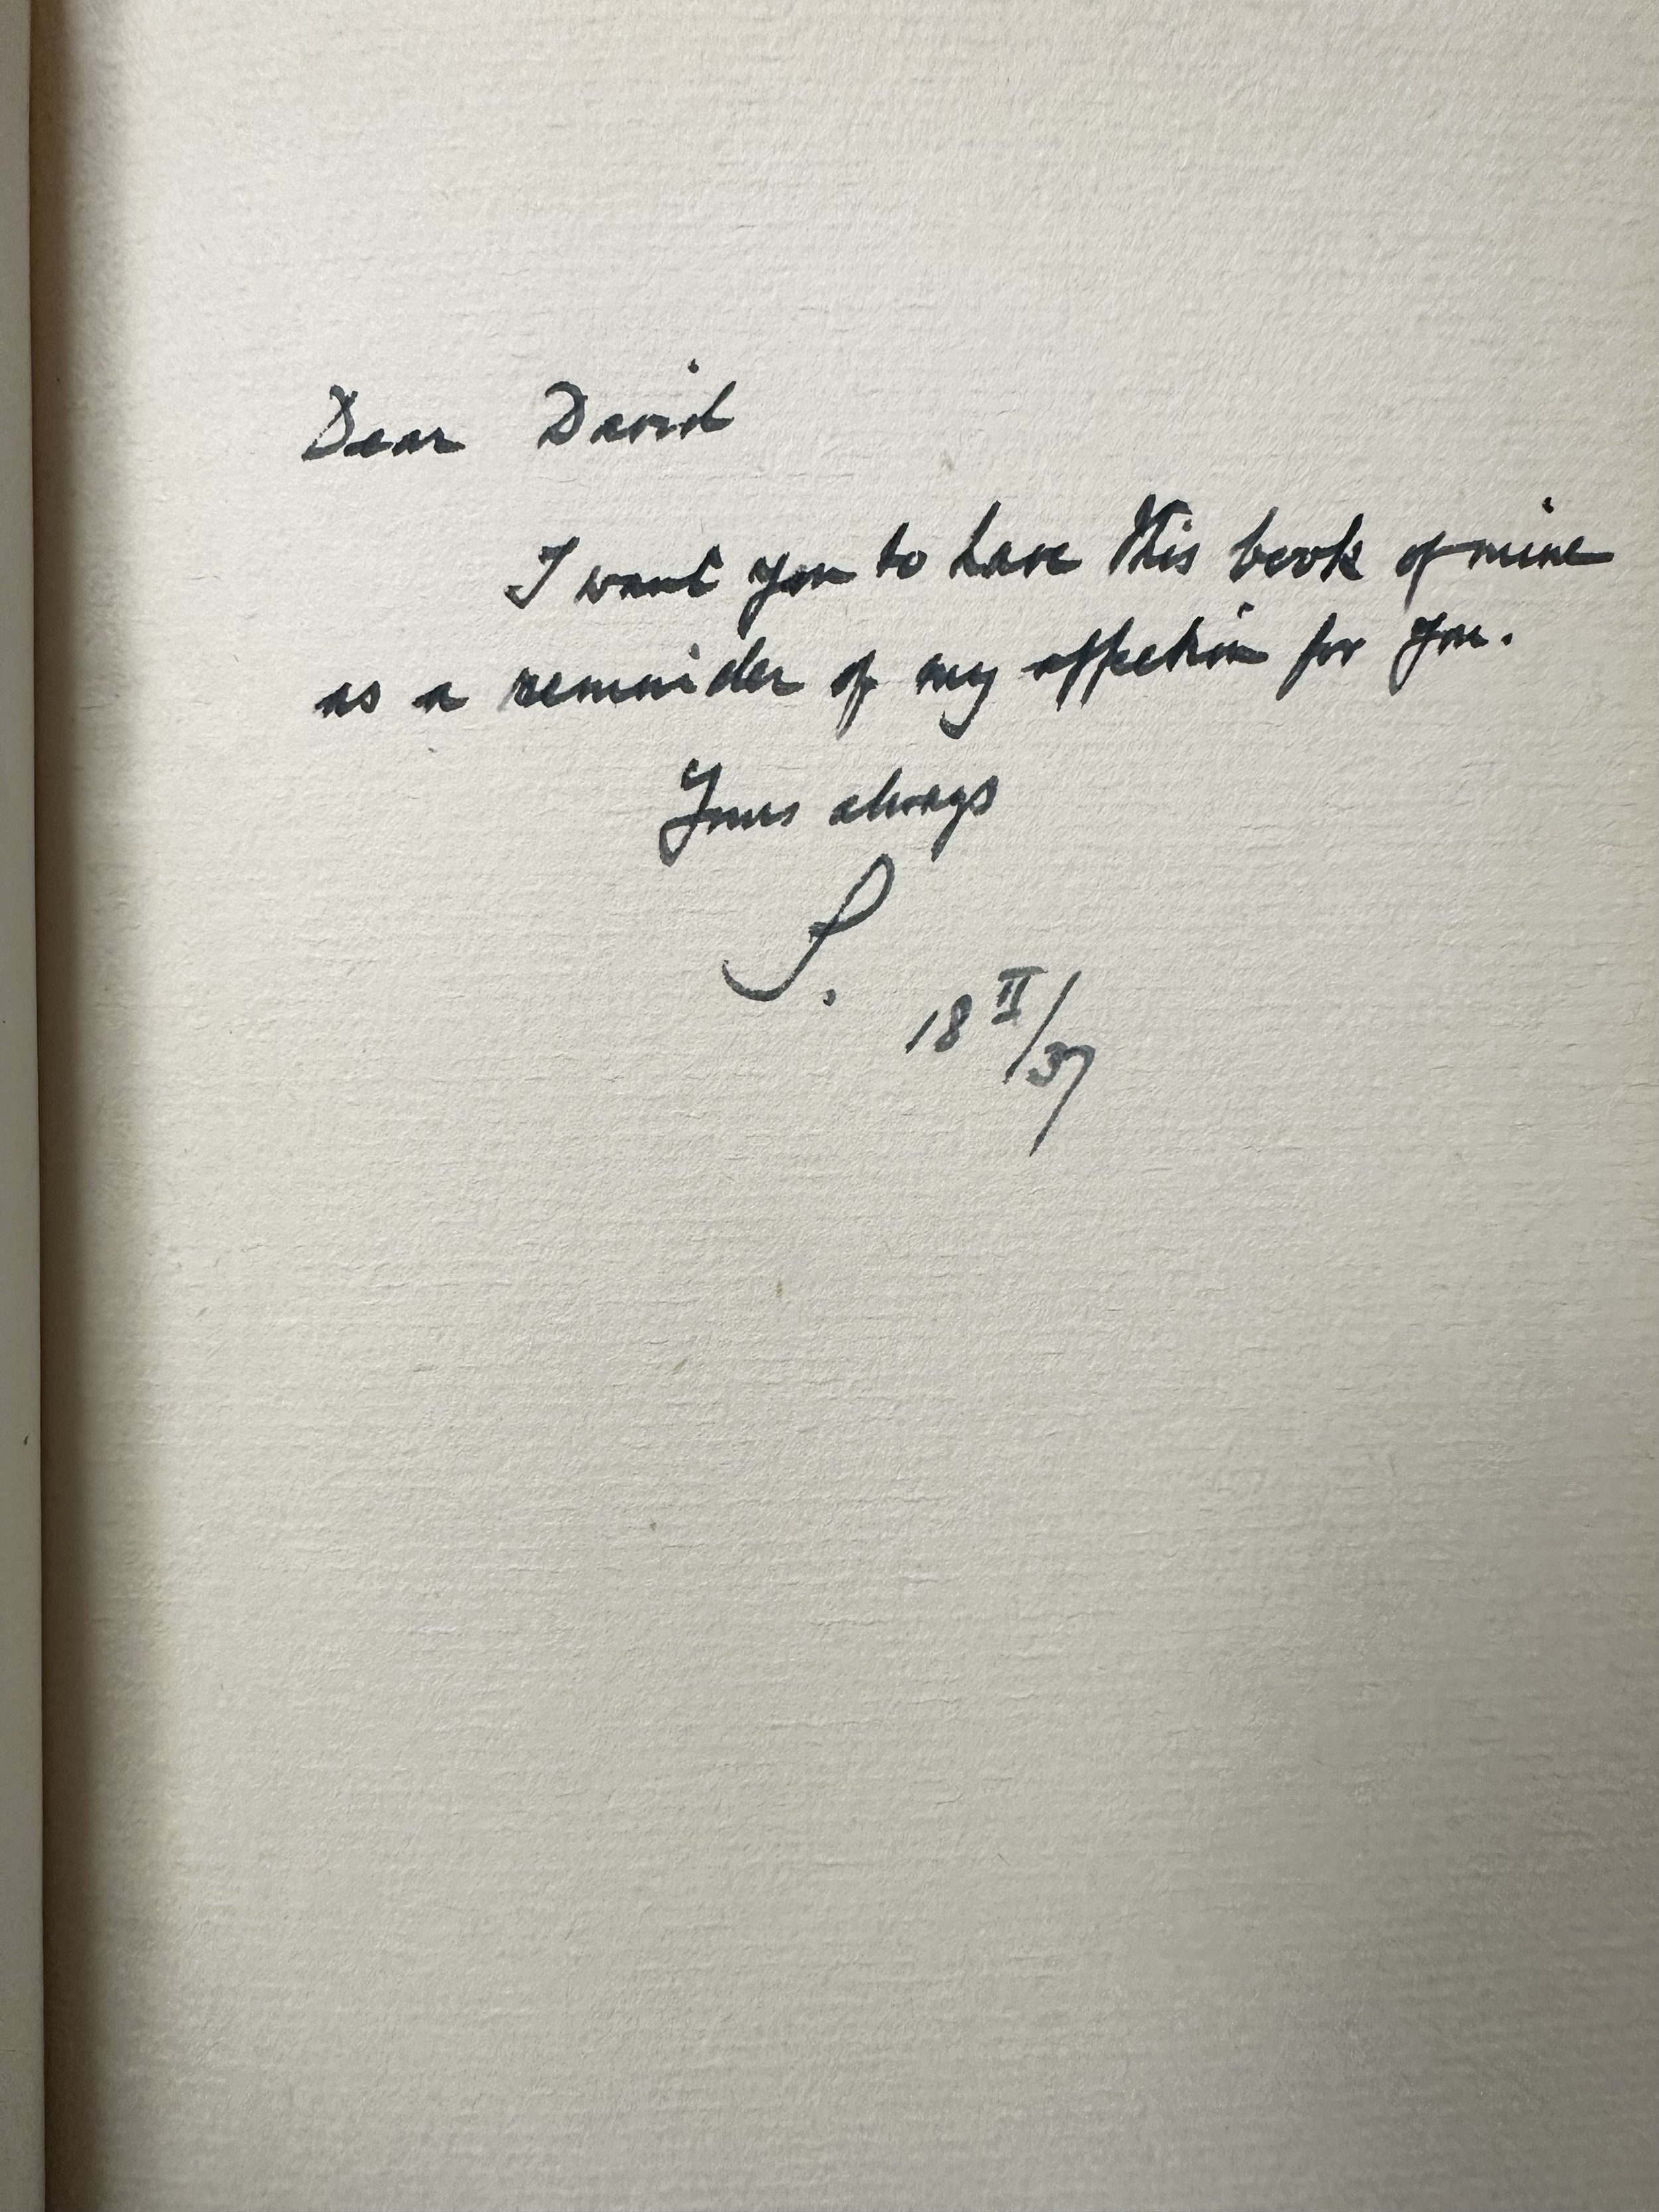 Dear David
I want you to have this book of mine
as a reminder of my affection for you.
Yours always
S.
18 II/37